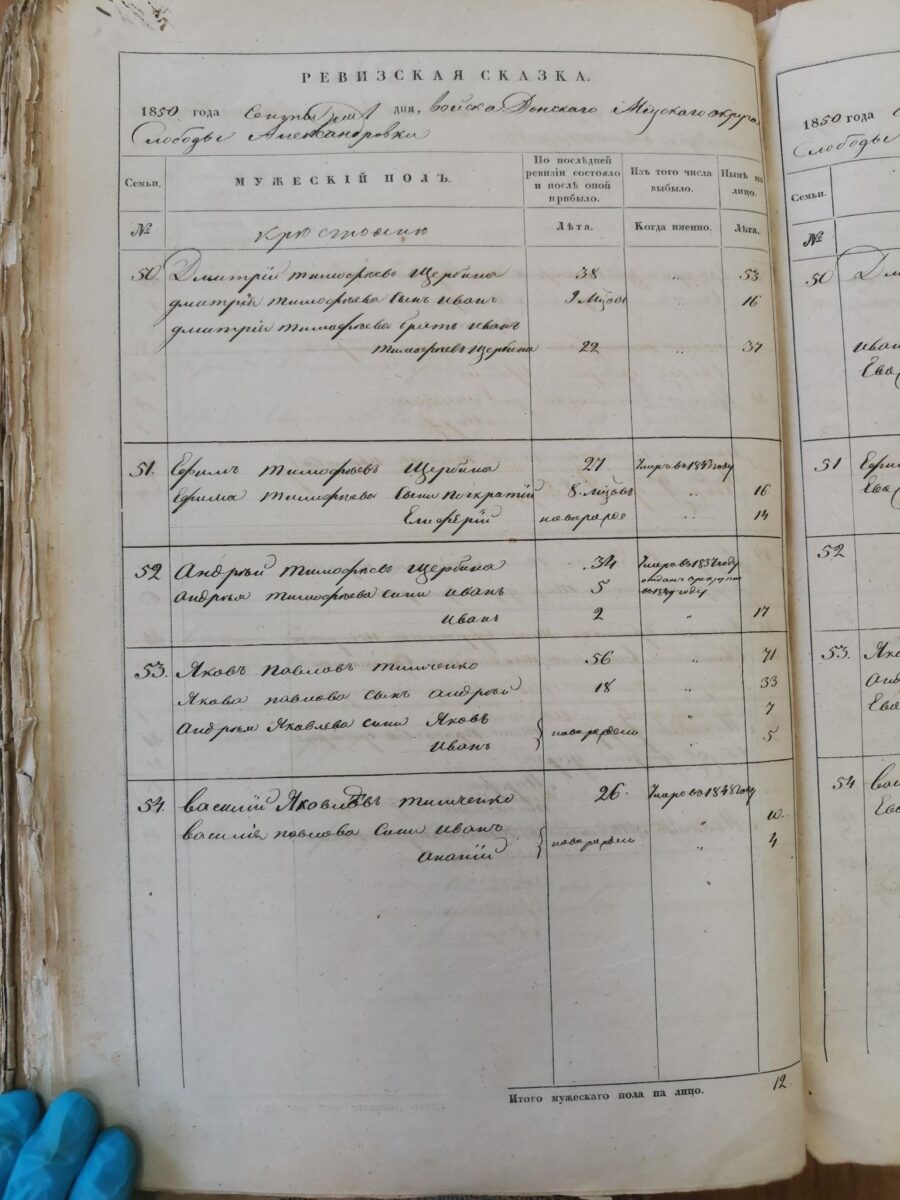 РЕВИЗСКАЯ СКАЗКА.
1850 года Сентября дня, войска Донскаго Міускаго округа
Слободы Александровки
Семьи. МУЖЕСКІЙ ПОЛЪ. По послѣдней ревизіи состояло и послѣ оной прибыло. Изъ того числа выбыло. Нынѣ на лицо.
№ крестьяне Лѣта. Когда именно. Лѣта.
50 Дмитрій тимофѣевъ Щербина 38 „ 53
дмитрія тимофѣева сынъ иванъ 9 Мѣсъ „ 16
дмитрія тимофѣева братъ иванъ
тимофѣевъ Щербина 22 „ 37
51. Ефимъ тимофѣевъ Щербина 27 Умеръ въ 1843 году
Ефима тимофѣева сыни Пократій 8. мѣсъ „ 16
Елиферій новоророе „ 14
52 Андрѣй тимофѣевъ Щербина 34 Умеръ во 1837 году
андрѣя тимофѣева сини иванъ 5 отданъ
во 1849 году
иванъ 2 „ 17
53. Яковъ павловъ тимченко 56 „ 71
Якова павлова сынъ андрѣй 18 „ 33
андрѣя Яковлева сини Яковъ новорордени „ 7
иванъ „ 5
54. василій Яковлевъ тимченко 26. Умеръ во 1848 году
василія павлова сини иванъ новорордени „ 10.
ананій „ 4
Итого мужескаго пола на лицо. 12
1850 года
Слободы
Семьи.
№
50
иван
Ева
51 Ефи
Ева
52
53.
Анд
Ева
54 вас
Ева